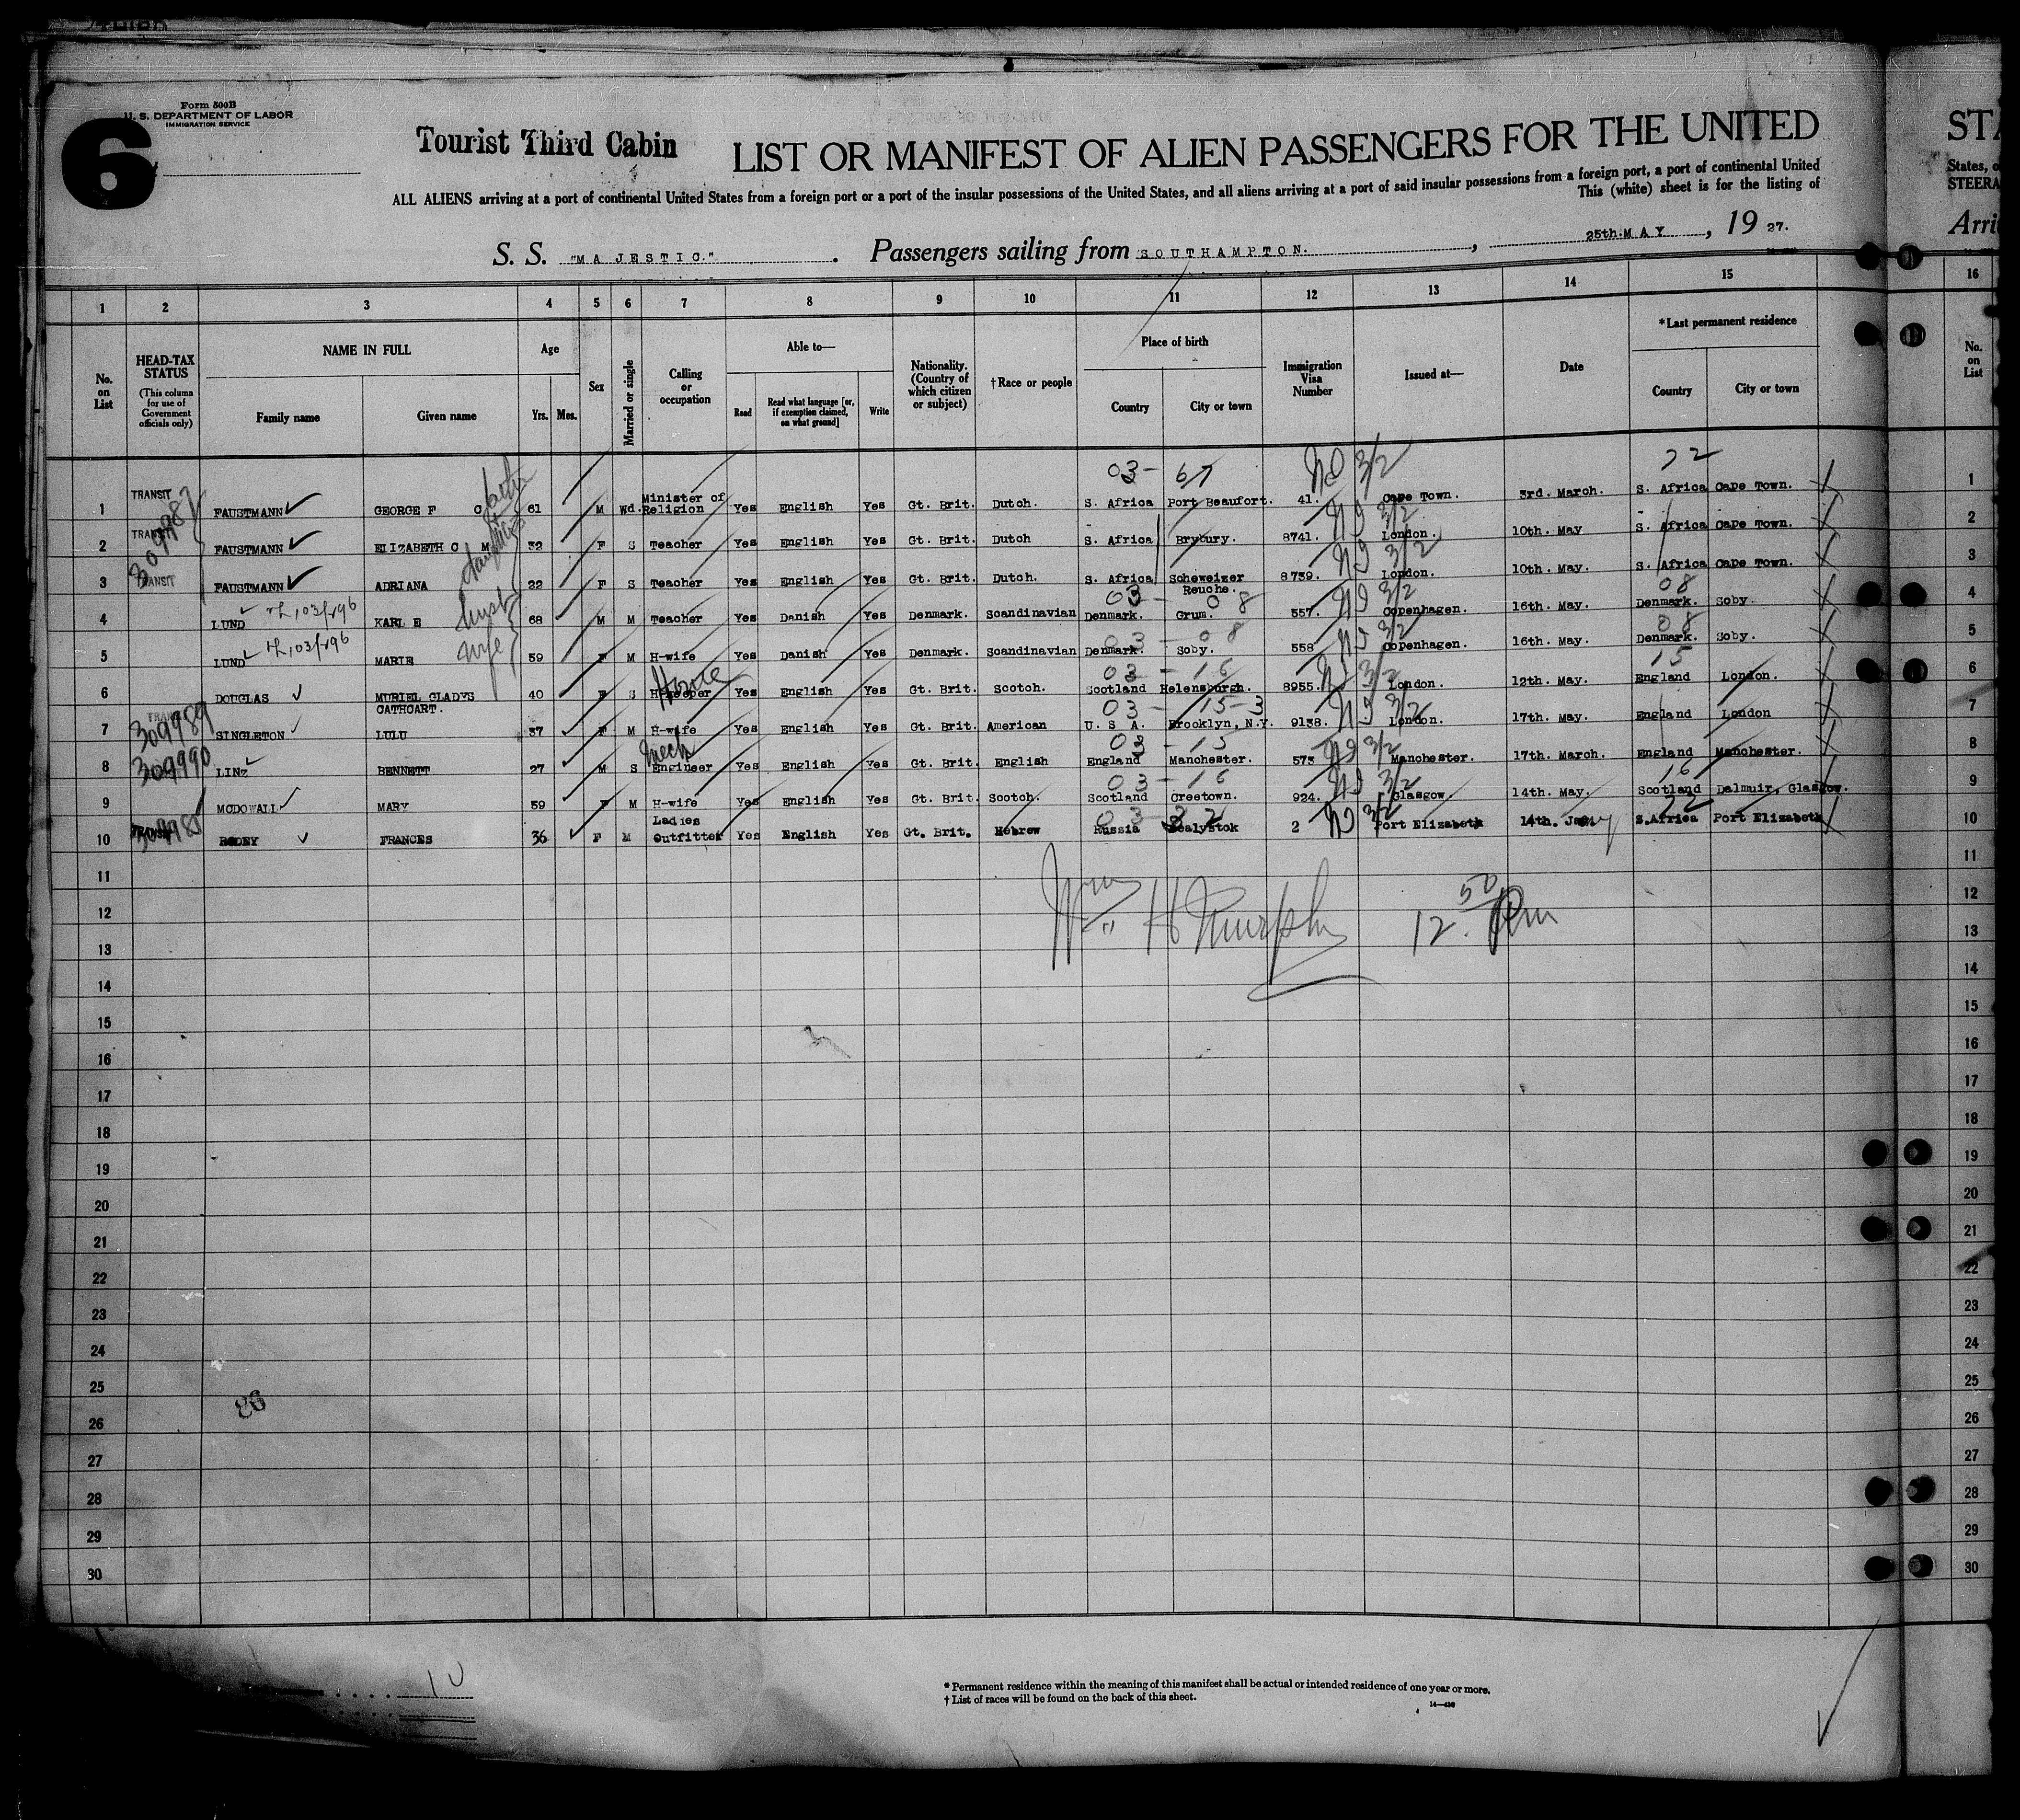 Form 500B
U. S. DEPARTMENT OF LABOR
IMMIGRATION SERVICE
6
Tourist Third Cabin
LIST OR MANIFEST OF ALIEN PASSENGERS FOR THE UNITED
STA
ALL ALIENS arriving at a port of continental United States from a foreign port or a port of the insular possessions of the United States, and all aliens arriving at a port of said insular possessions from a foreign port, a port of continental United
States, o
This (white) sheet is for the listing of
STEERA
S. S. "MAJESTIC." Passengers sailing from SOUTHAMPTON. , 25th. MAY , 19 27.
Arri
1 2 3 4 5 6 7 8 9 10 11 12 13 14 15 16
No. on List
HEAD-TAX STATUS
(This column for use of Government officials only)
NAME IN FULL
Family name Given name
Age
Yrs. Mos.
Sex
Married or single
Calling or occupation
Able to—
Read
Read what language [or, if exemption claimed, on what ground]
Write
Nationality. (Country of which citizen or subject)
† Race or people
Place of birth
Country City or town
Immigration Visa Number
Issued at—
Date
*Last permanent residence
Country City or town
No. on List
03 - 67 3/2 22
1 TRANSIT FAUSTMANN GEORGE F C 61 M Wd. Minister of Religion Yes English Yes Gt. Brit. Dutch. S. Africa Port Beaufort. 41. Cape Town. 3rd. March. S. Africa Cape Town. 1
309987
2 TRANSIT FAUSTMANN ELIZABETH C M 32 F S Teacher Yes English Yes Gt. Brit. Dutch S. Africa Brybury. 8741. London. 10th. May S. Africa Cape Town. 2
3 TRANSIT FAUSTMANN ADRIANA 22 F S Teacher Yes English Yes Gt. Brit. Dutch. S. Africa Scheweizer Reuche. 8739. London. 10th. May. S. Africa Cape Town. 3
03 - 08 3/2 08
4 LUND KARL E husb 68 M M Teacher Yes Danish Yes Denmark. Scandinavian Denmark. Grum. 557. Copenhagen. 16th. May. Denmark. Soby. 4
03 - 08 3/2 08
5 LUND MARIE wife 59 F M H-wife Yes Danish Yes Denmark. Scandinavian Denmark. Soby. 558 Copenhagen. 16th. May. Denmark. Soby. 5
03 - 16 3/2 15
6 DOUGLAS MURIEL GLADYS CATHCART. 40 F S House H-keeper Yes English Yes Gt. Brit. Scotch. Scotland Helensburgh. 8955. London. 12th. May. England London. 6
03 - 15-3 3/2
7 309989 SINGLETON LULU 37 F M H-wife Yes English Yes Gt. Brit. American U. S A. Brooklyn, N.Y. 9138. London. 17th. May. England London 7
03 - 15 3/2
8 309990 LINZ BENNETT 27 M S Mech Engineer Yes English Yes Gt. Brit. English England Manchester. 573 Manchester. 17th. March. England Manchester. 8
03 - 16 3/2 16
9 MCDOWALL MARY 59 F M H-wife Yes English Yes Gt. Brit. Scotch. Scotland Creetown. 924. Glasgow. 14th. May. Scotland Dalmuir, Glasgow. 9
03 - 32 3/2 72
10 TRANSIT RODEY FRANCES 36 F M Ladies Outfitter Yes English Yes Gt. Brit. Hebrew Russia Bealystok 2 Port Elizabeth 14th. S.Africa Port Elizabeth 10
11 11
12 Wm H Murphy 12.50 Pm 12
13 13
14 14
15 15
16 16
17 17
18 18
19 19
20 20
21 21
22 22
23 23
24 24
25 25
86
26 26
27 27
28 28
29 29
30 30
10
* Permanent residence within the meaning of this manifest shall be actual or intended residence of one year or more.
† List of races will be found on the back of this sheet.